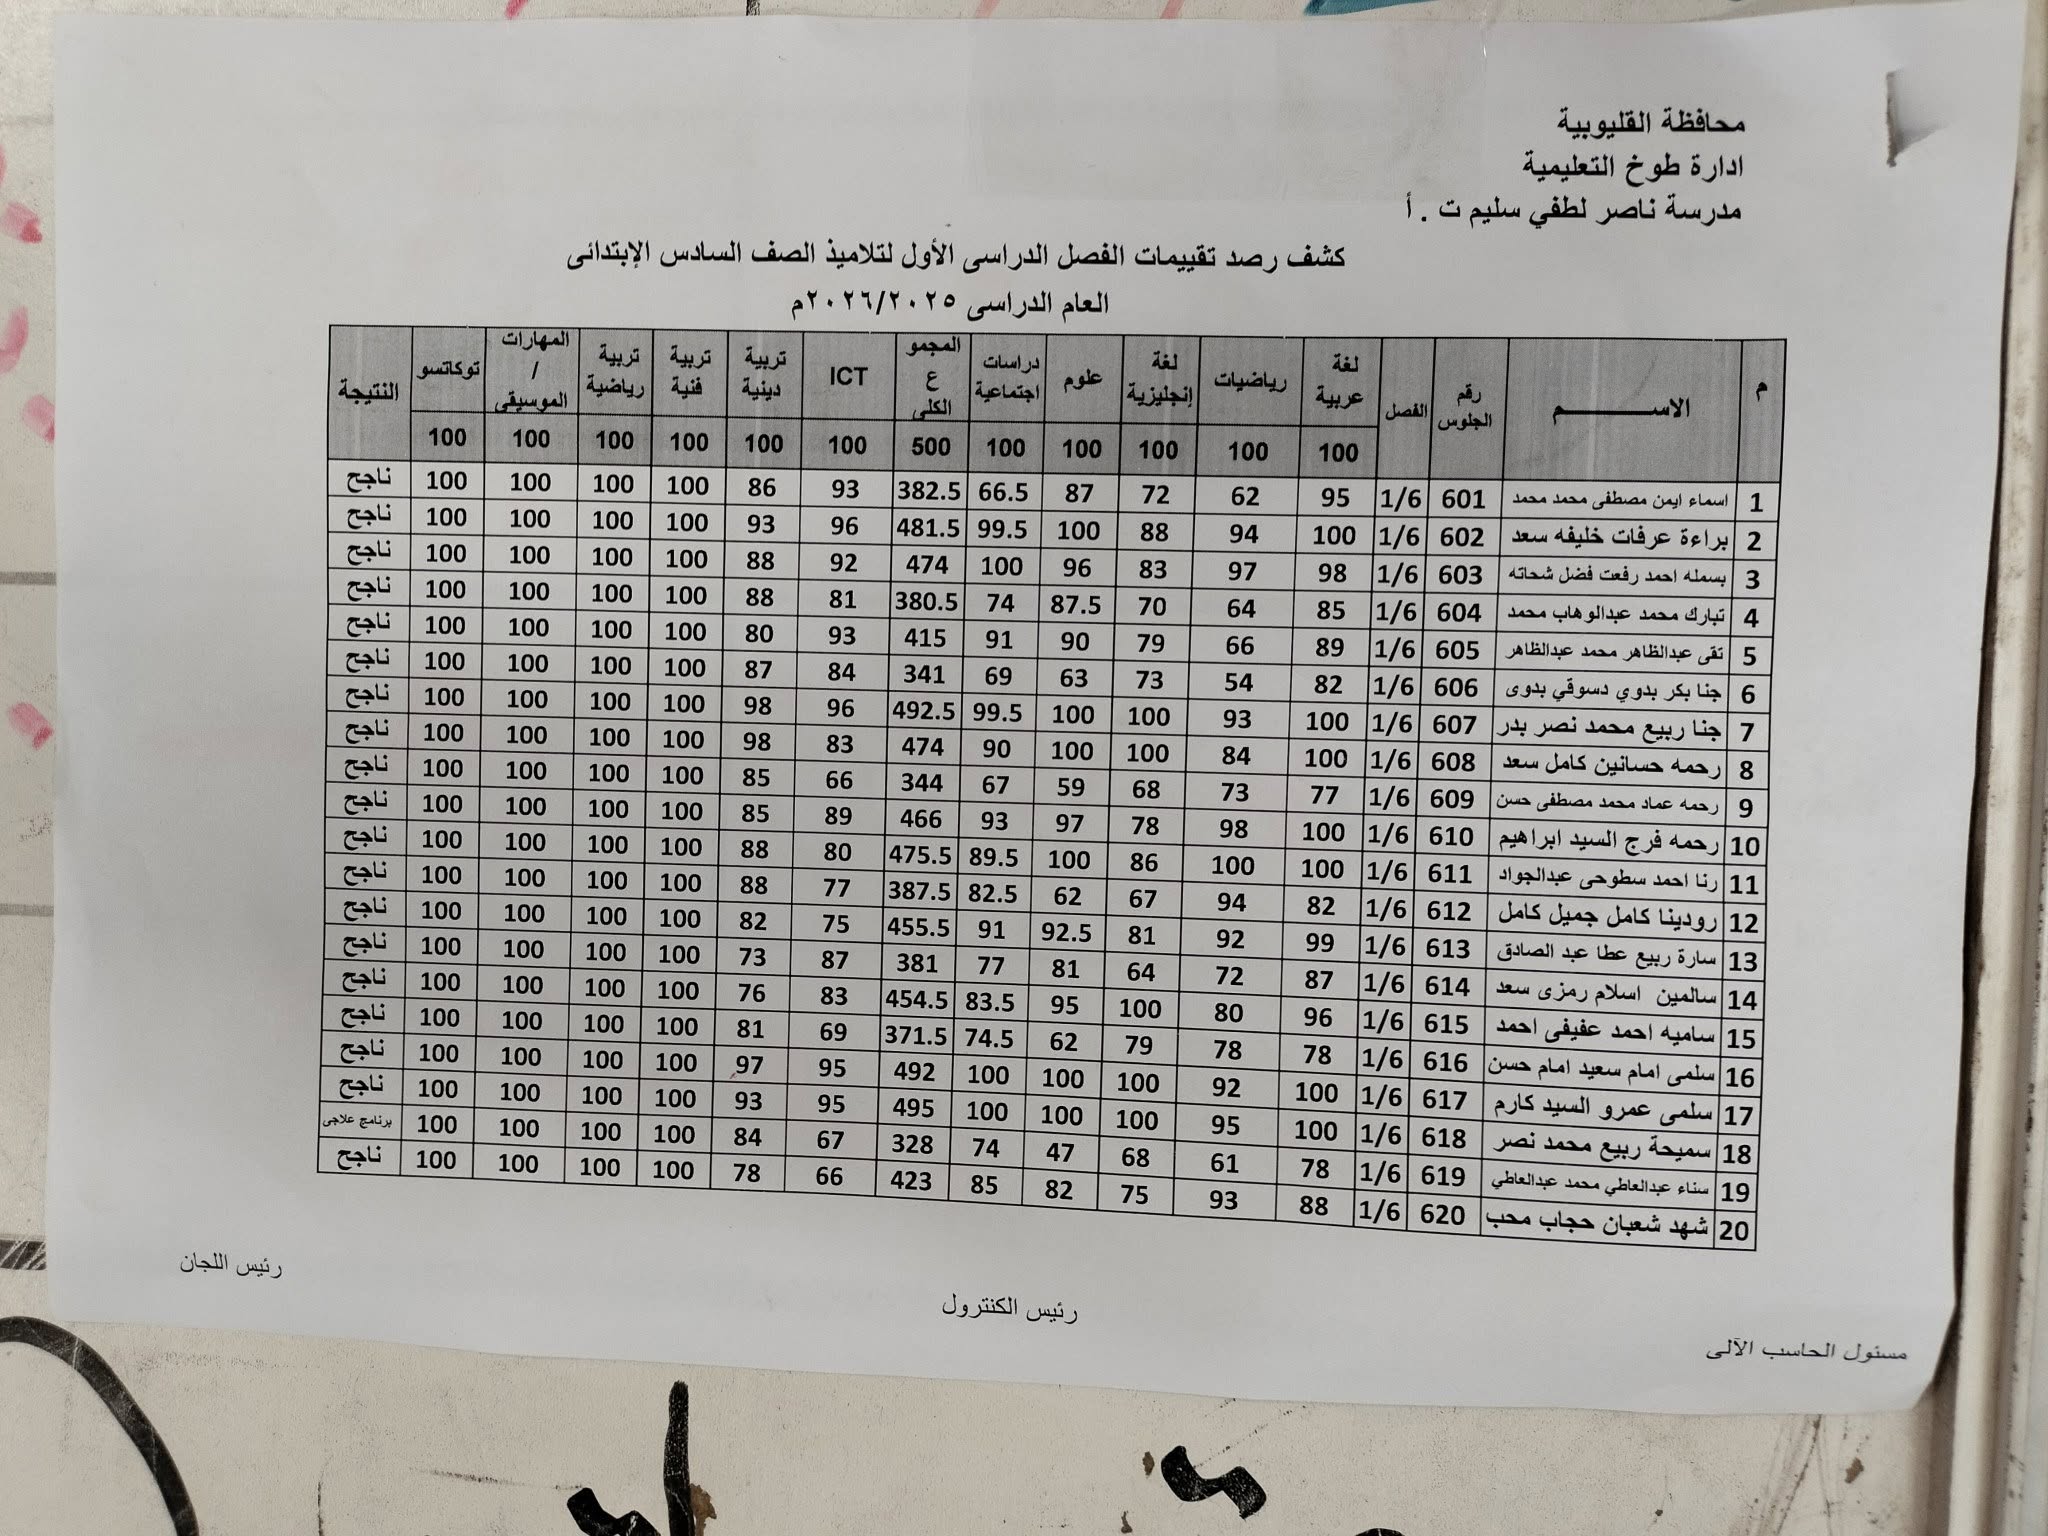 محافظة القليوبية
ادارة طوخ التعليمية
مدرسة ناصر لطفي سليم ت . أ
كشف رصد تقييمات الفصل الدراسى الأول لتلاميذ الصف السادس الإبتدائى
العام الدراسى ٢٠٢٦/٢٠٢٥م
م الاســـــــــم رقم الجلوس الفصل لغة عربية رياضيات لغة إنجليزية علوم دراسات اجتماعية المجموع الكلى ICT تربية دينية تربية فنية تربية رياضية المهارات / الموسيقى توكاتسو النتيجة
100 100 100 100 100 500 100 100 100 100 100 100
1 اسماء ايمن مصطفى محمد محمد 601 1/6 95 62 72 87 66.5 382.5 93 86 100 100 100 100 ناجح
2 براءة عرفات خليفه سعد 602 1/6 100 94 88 100 99.5 481.5 96 93 100 100 100 100 ناجح
3 بسمله احمد رفعت فضل شحاته 603 1/6 98 97 83 96 100 474 92 88 100 100 100 100 ناجح
4 تبارك محمد عبدالوهاب محمد 604 1/6 85 64 70 87.5 74 380.5 81 88 100 100 100 100 ناجح
5 تقى عبدالظاهر محمد عبدالظاهر 605 1/6 89 66 79 90 91 415 93 80 100 100 100 100 ناجح
6 جنا بكر بدوي دسوقي بدوى 606 1/6 82 54 73 63 69 341 84 87 100 100 100 100 ناجح
7 جنا ربيع محمد نصر بدر 607 1/6 100 93 100 100 99.5 492.5 96 98 100 100 100 100 ناجح
8 رحمه حسانين كامل سعد 608 1/6 100 84 100 100 90 474 83 98 100 100 100 100 ناجح
9 رحمه عماد محمد مصطفى حسن 609 1/6 77 73 68 59 67 344 66 85 100 100 100 100 ناجح
10 رحمه فرج السيد ابراهيم 610 1/6 100 98 78 97 93 466 89 85 100 100 100 100 ناجح
11 رنا احمد سطوحى عبدالجواد 611 1/6 100 100 86 100 89.5 475.5 80 88 100 100 100 100 ناجح
12 رودينا كامل جميل كامل 612 1/6 82 94 67 62 82.5 387.5 77 88 100 100 100 100 ناجح
13 سارة ربيع عطا عبد الصادق 613 1/6 99 92 81 92.5 91 455.5 75 82 100 100 100 100 ناجح
14 سالمين اسلام رمزى سعد 614 1/6 87 72 64 81 77 381 87 73 100 100 100 100 ناجح
15 ساميه احمد عفيفى احمد 615 1/6 96 80 100 95 83.5 454.5 83 76 100 100 100 100 ناجح
16 سلمى امام سعيد امام حسن 616 1/6 78 78 79 62 74.5 371.5 69 81 100 100 100 100 ناجح
17 سلمى عمرو السيد كارم 617 1/6 100 92 100 100 100 492 95 97 100 100 100 100 ناجح
18 سميحة ربيع محمد نصر 618 1/6 100 95 100 100 100 495 95 93 100 100 100 100 ناجح
19 سناء عبدالعاطي محمد عبدالعاطي 619 1/6 78 61 68 47 74 328 67 84 100 100 100 100 برنامج علاجى
20 شهد شعبان حجاب محب 620 1/6 88 93 75 82 85 423 66 78 100 100 100 100 ناجح
مسئول الحاسب الآلى
رئيس الكنترول
رئيس اللجان